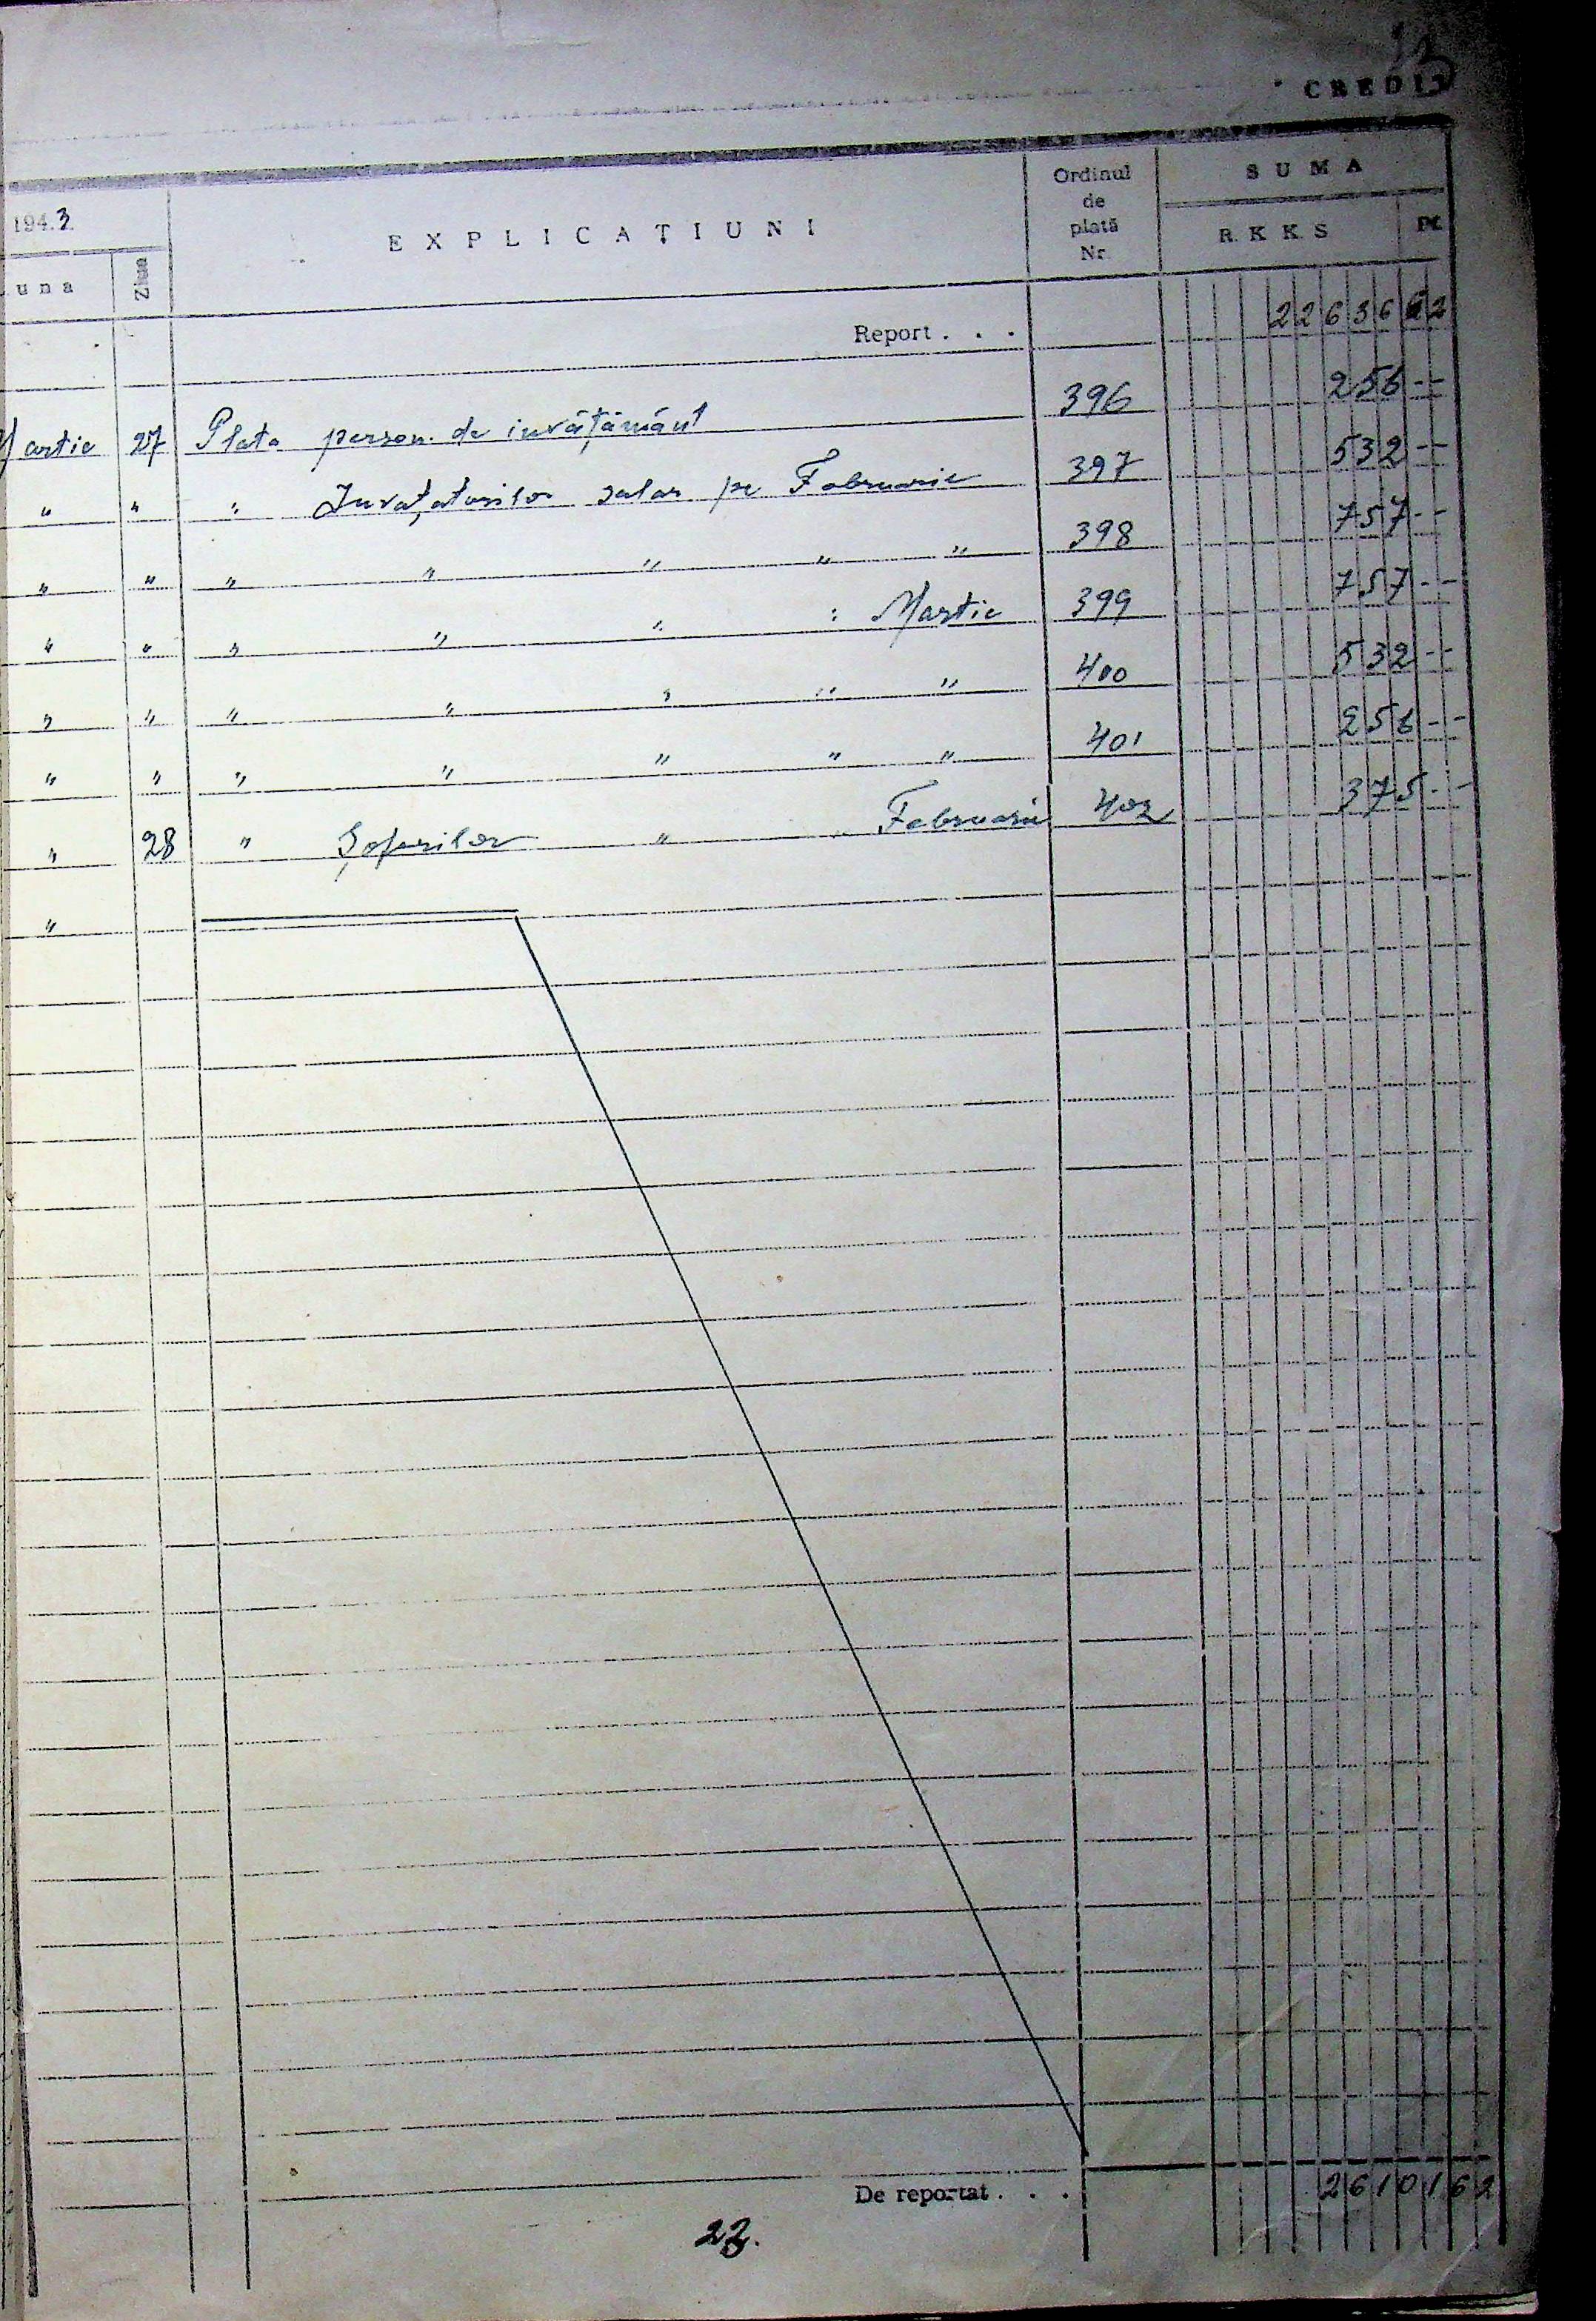 13
CREDIT
194.3.
una Ziua EXPLICAȚIUNI Ordinul de plată Nr. SUMA R.K.K.S Pf.
Report . . . 22636 62
Martie 27 Plata person. de învățământ 396 256 --
" " " Învațatorilor salar pe Februarie 397 532 --
" " " " " " " 398 757 --
" " " " " " Martie 399 757 --
" " " " " " " 400 532 --
" " " " " " " 401 256 --
" 28 " Șoferilor " Februarie 402 375 --
"
De reportat . . . 26101 62
23.